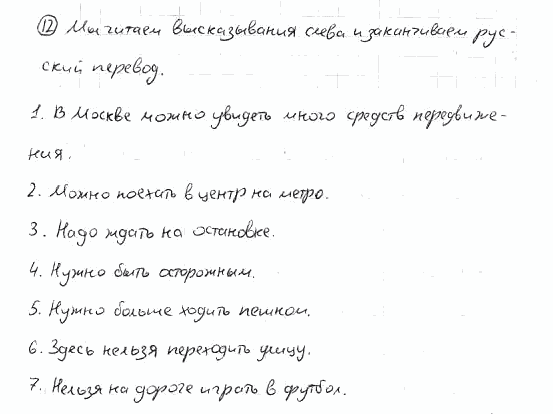 12 Мы читаем высказывания слева и заканчиваем рус-
ский перевод.
1. В Москве можно увидеть много средств передвиже-
ния.
2. Можно поехать в центр на метро.
3. Надо ждать на остановке.
4. Нужно быть осторожным.
5. Нужно больше ходить пешком.
6. Здесь нельзя переходить улицу.
7. Нельзя на дороге играть в футбол.